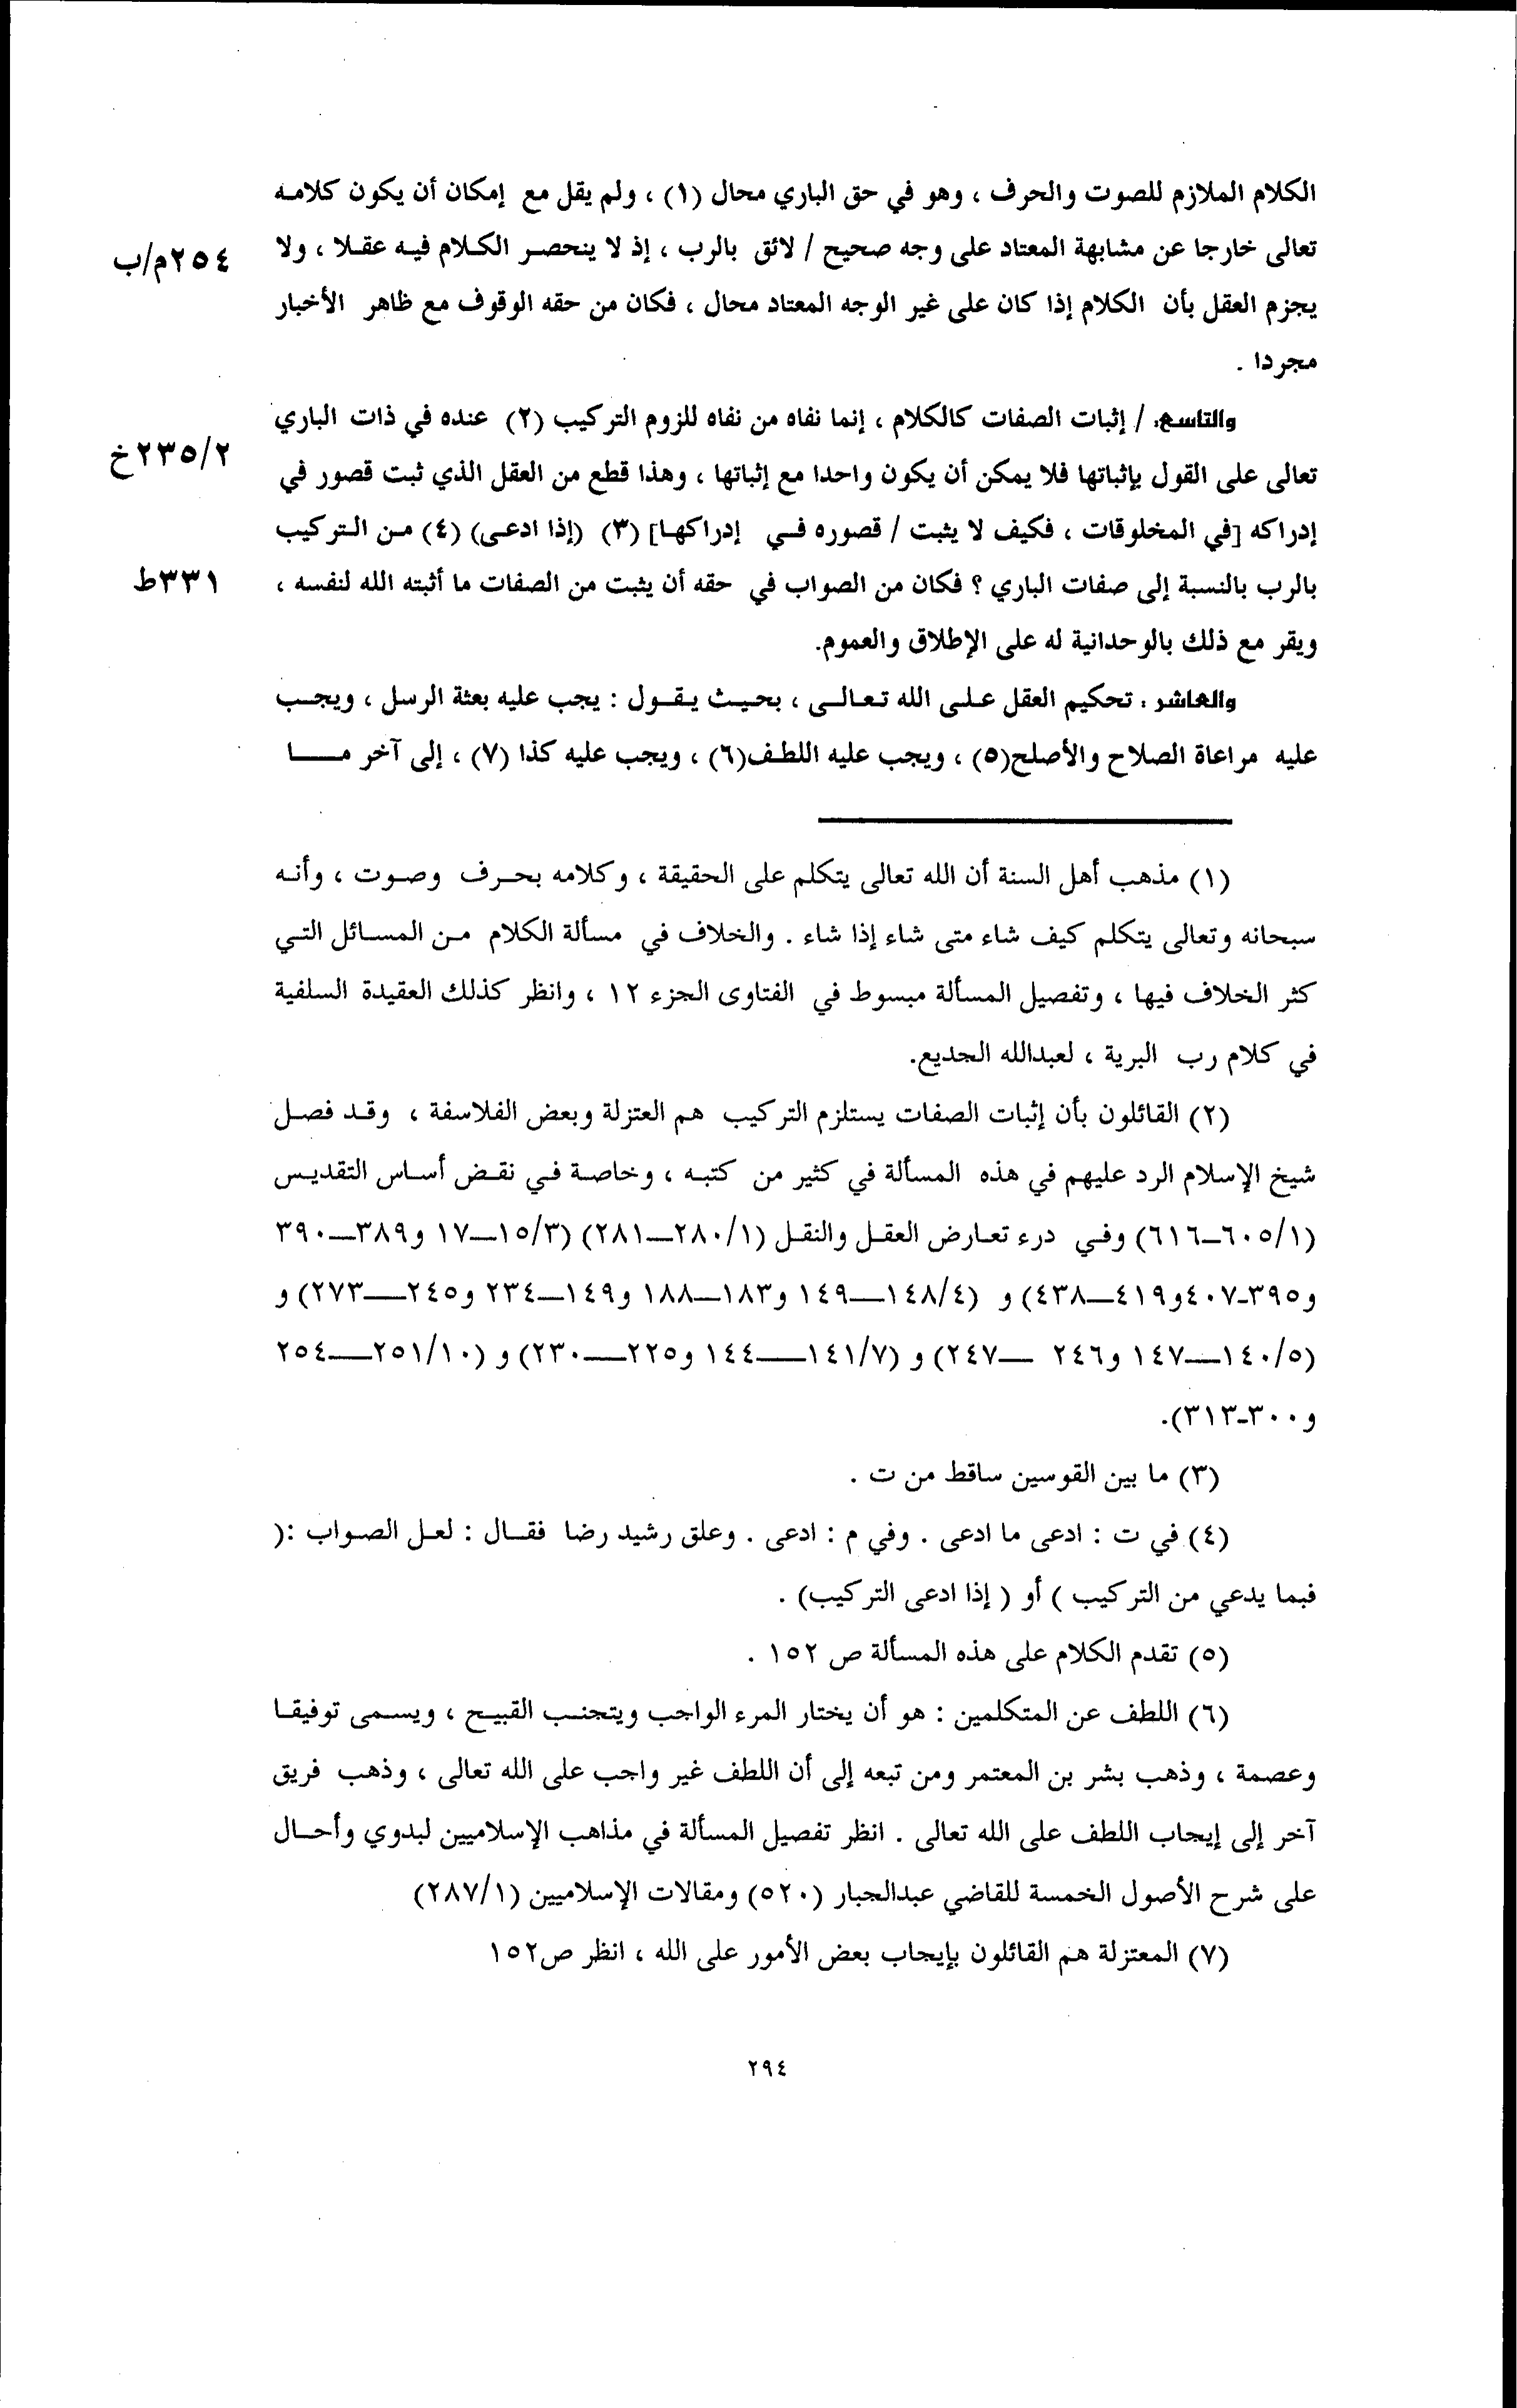 الكلام الملازم للصوت والحرف ، وهو في حق الباري محال (١) ، ولم يقل مع إمكان أن يكون كلامه
تعالى خارجا عن مشابهة المعتاد على وجه صحيح / لائق بالرب ، إذ لا ينحصر الكلام فيه عقلا ، ولا
٢٥٤م/ب
يجزم العقل بأن الكلام إذا كان على غير الوجه المعتاد محال ، فكان من حقه الوقوف مع ظاهر الأخبار
مجردا .
والتاسع: / إثبات الصفات كالكلام ، إنما نفاه من نفاه للزوم التركيب (٢) عنده في ذات الباري
٢٣٥/٢خ
تعالى على القول بإثباتها فلا يمكن أن يكون واحدا مع إثباتها ، وهذا قطع من العقل الذي ثبت قصور في
إدراكه [في المخلوقات ، فكيف لا يثبت / قصوره في إدراكها] (٣) (إذا ادعى) (٤) من التركيب
بالرب بالنسبة إلى صفات الباري ؟ فكان من الصواب في حقه أن يثبت من الصفات ما أثبته الله لنفسه ،
٣٣١ط
ويقر مع ذلك بالوحدانية له على الإطلاق والعموم.
والعاشر : تحكيم العقل على الله تعالى ، بحيث يقول : يجب عليه بعثة الرسل ، ويجب
عليه مراعاة الصلاح والأصلح(٥) ، ويجب عليه اللطف(٦) ، ويجب عليه كذا (٧) ، إلى آخر ما
(١) مذهب أهل السنة أن الله تعالى يتكلم على الحقيقة ، وكلامه بحرف وصوت ، وأنه
سبحانه وتعالى يتكلم كيف شاء متى شاء إذا شاء . والخلاف في مسألة الكلام من المسائل التي
كثر الخلاف فيها ، وتفصيل المسألة مبسوط في الفتاوى الجزء ١٢ ، وانظر كذلك العقيدة السلفية
في كلام رب البرية ، لعبدالله الجديع.
(٢) القائلون بأن إثبات الصفات يستلزم التركيب هم العتزلة وبعض الفلاسفة ، وقد فصل
شيخ الإسلام الرد عليهم في هذه المسألة في كثير من كتبه ، وخاصة في نقض أساس التقديس
(٦٠٥/١ــ٦١٦) وفي درء تعارض العقل والنقل (٢٨٠/١ــ٢٨١) (١٥/٣ــ١٧ و٣٨٩ــ٣٩٠
و٣٩٥ـ٤٠٧و٤١٩ــ٤٣٨) و (١٤٨/٤ــ١٤٩ و١٨٣ــ١٨٨ و١٤٩ــ٢٣٤ و٢٤٥ــ٢٧٣) و
(١٤٠/٥ــ١٤٧ و٢٤٦ ــ٢٤٧) و (١٤١/٧ــ١٤٤ و٢٢٥ــ٢٣٠) و (٢٥١/١٠ــ٢٥٤
و٣٠٠ـ٣١٣).
(٣) ما بين القوسين ساقط من ت .
(٤) في ت : ادعى ما ادعى . وفي م : ادعى . وعلق رشيد رضا فقال : لعل الصواب :(
فبما يدعي من التركيب ) أو ( إذا ادعى التركيب) .
(٥) تقدم الكلام على هذه المسألة ص ١٥٢ .
(٦) اللطف عن المتكلمين : هو أن يختار المرء الواجب ويتجنب القبيح ، ويسمى توفيقا
وعصمة ، وذهب بشر بن المعتمر ومن تبعه إلى أن اللطف غير واجب على الله تعالى ، وذهب فريق
آخر إلى إيجاب اللطف على الله تعالى . انظر تفصيل المسألة في مذاهب الإسلاميين لبدوي وأحال
على شرح الأصول الخمسة للقاضي عبدالجبار (٥٢٠) ومقالات الإسلاميين (٢٨٧/١)
(٧) المعتزلة هم القائلون بإيجاب بعض الأمور على الله ، انظر ص١٥٢
٢٩٤